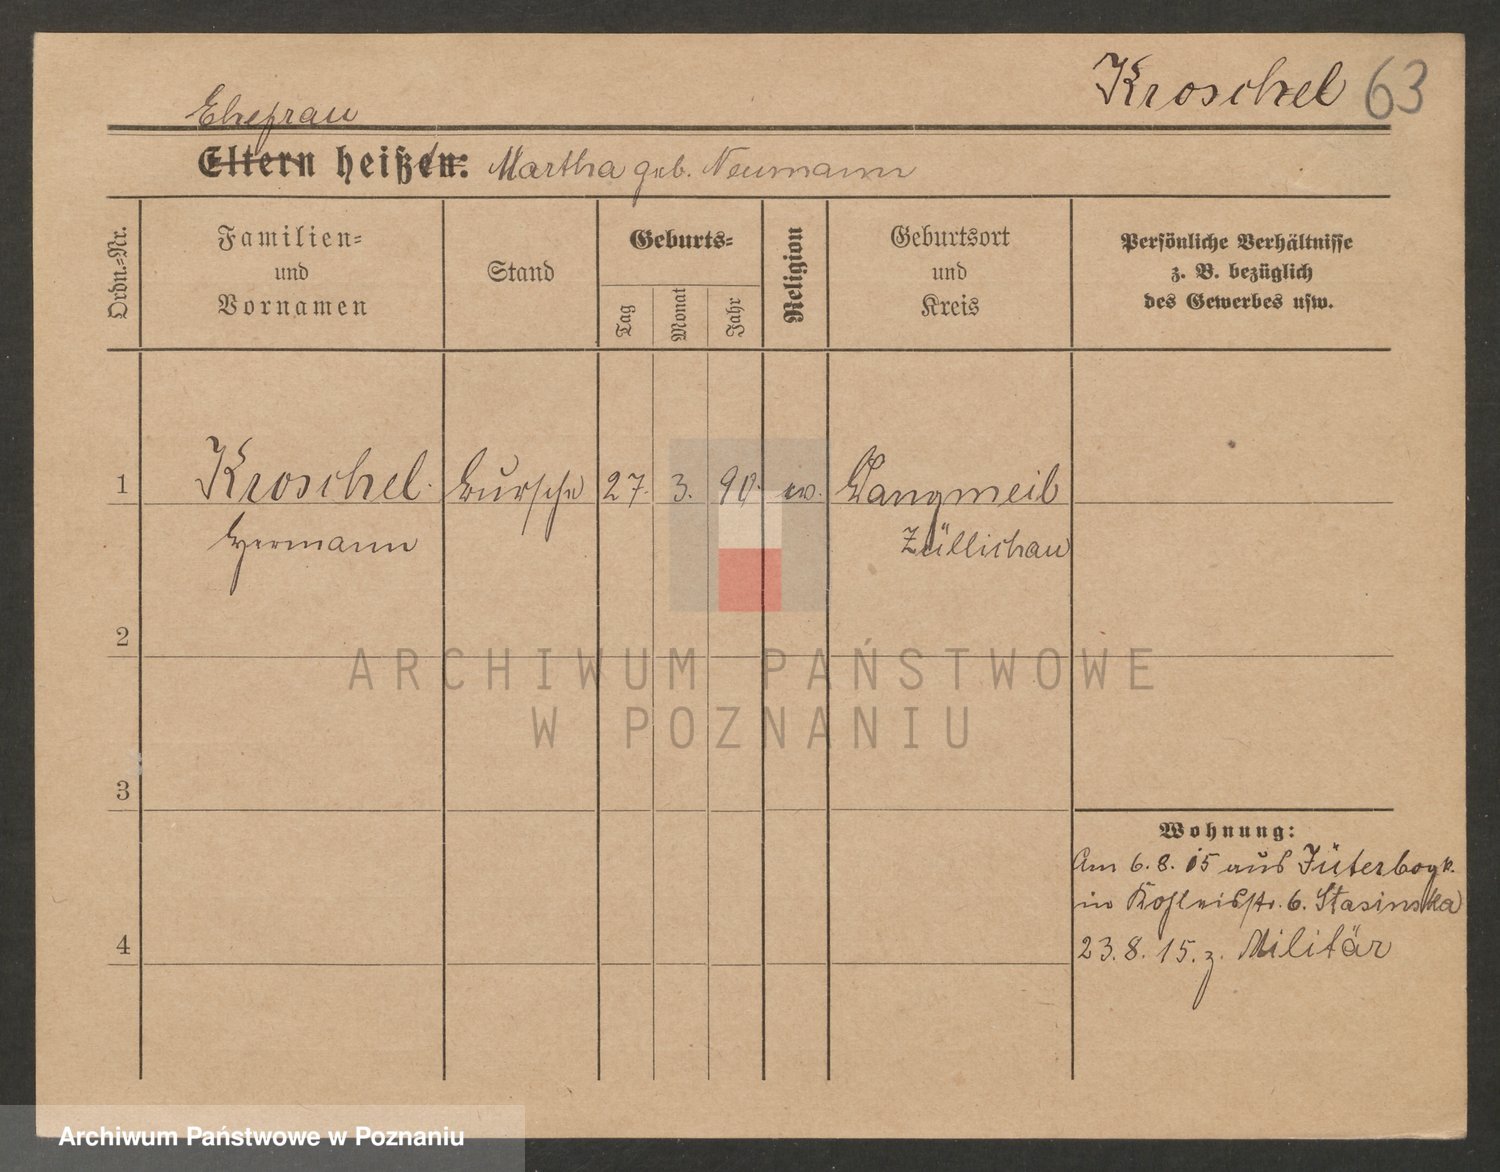 Kroschel 63
Ehefrau
Eltern heißen: Martha geb. Neumann
Ordn.-Nr.
Familien-
und
Vornamen
Stand
Geburts-
Tag
Monat
Jahr
Religion
Geburtsort
und
Kreis
Persönliche Verhältnisse
z. B. bezüglich
des Gewerbes usw.
1 Kroschel Bursche 27. 3. 90. ev. Langmeil
Hermann Züllichau
2
ARCHIWUM PAŃSTWOWE
W POZNANIU
3
Wohnung:
Am 6.8.15 aus Jüterbog
in 6. Stasinska
4
23.8.15. z. Militär
Archiwum Państwowe w Poznaniu